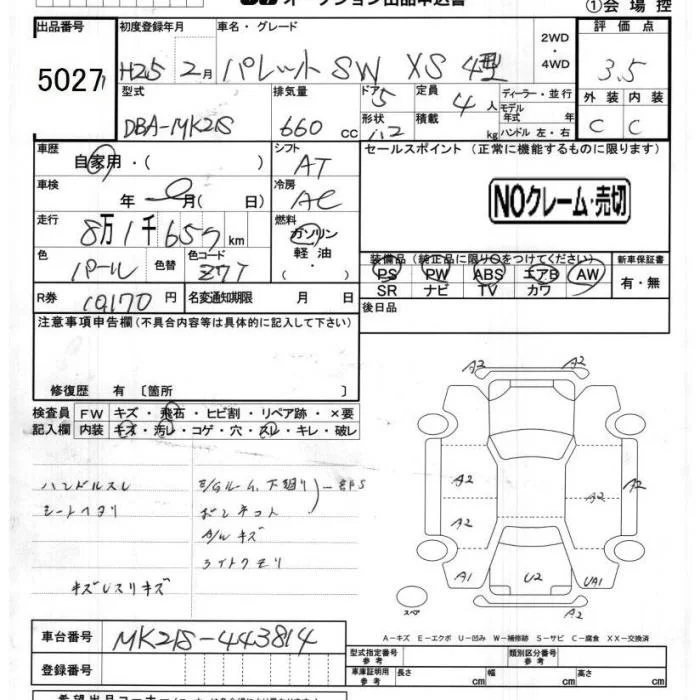 オークション出品申込書 ①会場控
出品番号 初度登録年月 車名・グレード 2WD・4WD 評価点
5027 H25 2月 パレット SW XS 4型 3.5
型式 排気量 ドア 5 定員 4人 ディーラー・並行 外装 内装
DBA-MK21S 660 cc 形状 積載 kg モデル年式 年式 ハンドル 左・右 C C
車歴 自家用・( ) シフト AT セールスポイント(正常に機能するものに限ります)
車検 年 月( 日) 冷房 AC NOクレーム・売切
走行 8万1千657km 燃料 ガソリン 軽油 ・( )
装備品(純正品に限り○をつけてください) 新車保証書
色 パール 色替 色コード Z7T PS PW ABS エアB AW 有・無
SR ナビ TV カワ
R券 10170円 名変通知期限 月 日 後日品
注意事項申告欄(不具合内容等は具体的に記入して下さい)
修復歴 有〔箇所 〕
検査員 FW キズ・飛石・ヒビ割・リペア跡・×要
記入欄 内装 キズ・汚レ・コゲ・穴・スレ・キレ・破レ
A2 A2
ハンドルスレ E/Gルーム、下廻り
シートヘタリ ボンネット
A/Wキズ
ライトクモリ
キズUスリキズ
A2 A2 A2
A2
A1 U2 UA1
スペア A2
A-キズ E-エクボ U-凹み W-補修跡 S-サビ C-腐食 XX-交換済
車台番号 MK21S-443814 型式指定番号 参考 類別区分番号 参考
登録番号 車庫証明用 参考 長さ cm 幅 cm 高さ cm